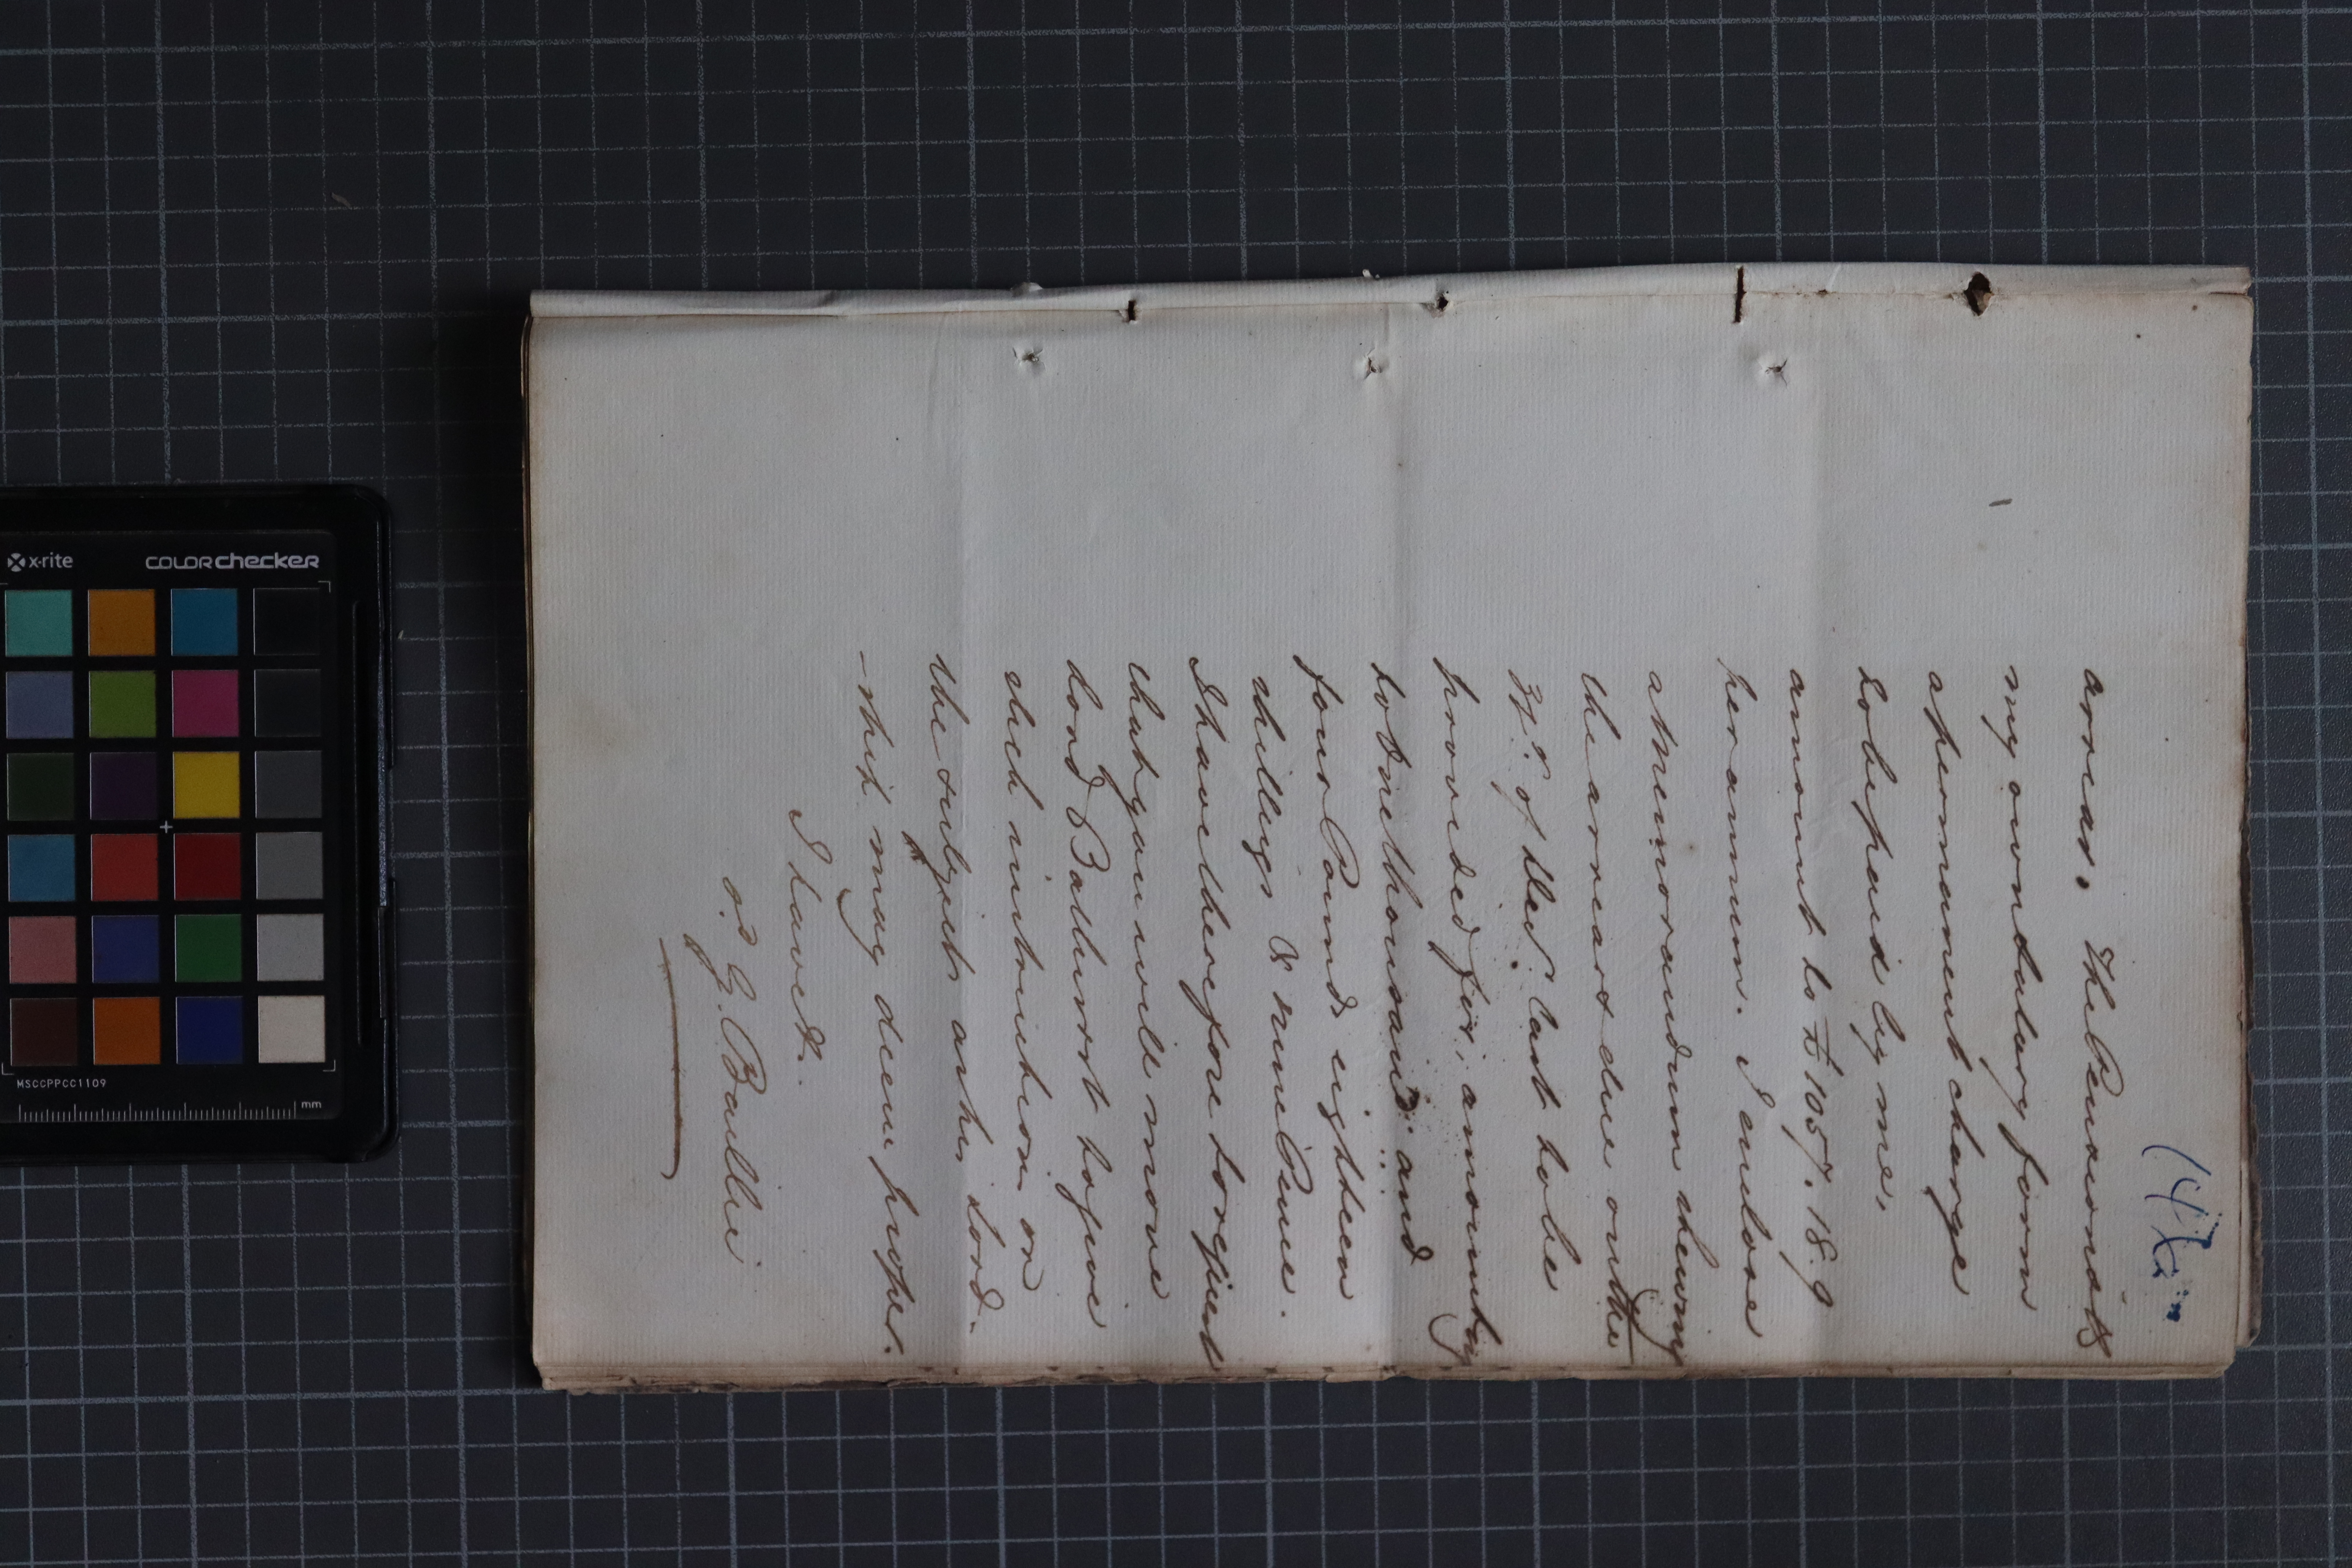 147
arrear. The Pensions &
my own salary form
a permanent charge
to be paid by me,
amount to £1057.18.9
per annum. I enclose
a Memorandum shewing
the arrears due on the
31st of Decr last to be
provided for, amounting
to One thousand and
four Pounds eighteen
shillings & nine Pence.
I have therefore to request
that you will move
Lord Bathurst to give
such instruction on
the subject as his Lord-
-ship may deem proper.
I have &c.
G. Baillie
x-rite
COLORchecker
MSCCPPCC1109
mm